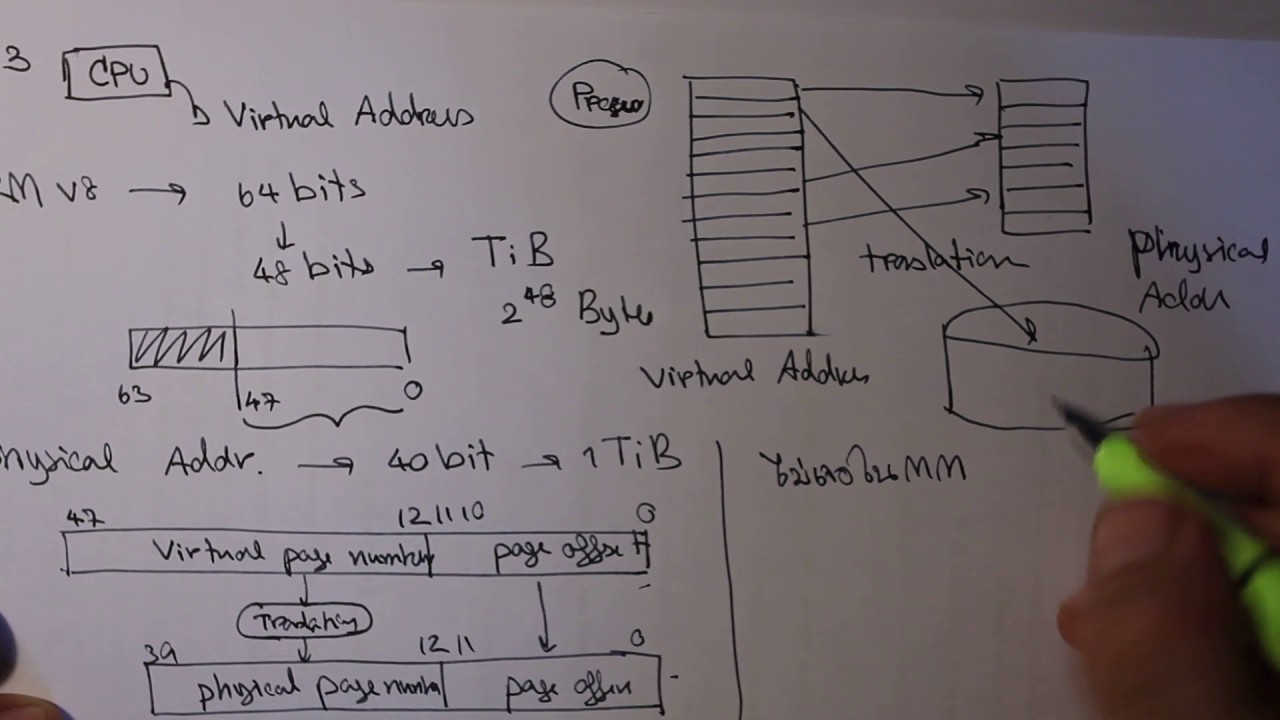 3 CPU
Virtual Address
M V8 → 64 bits
48 bits → TiB
2^48 Byte
63 47 0
hysical Addr. → 40 bit → 1 TiB
47 12 11 10 0
Virtual page number page offset
39 12 11 0
physical page number page offset
translation
Physical
Virtual Address
ไม่เจอใน MM